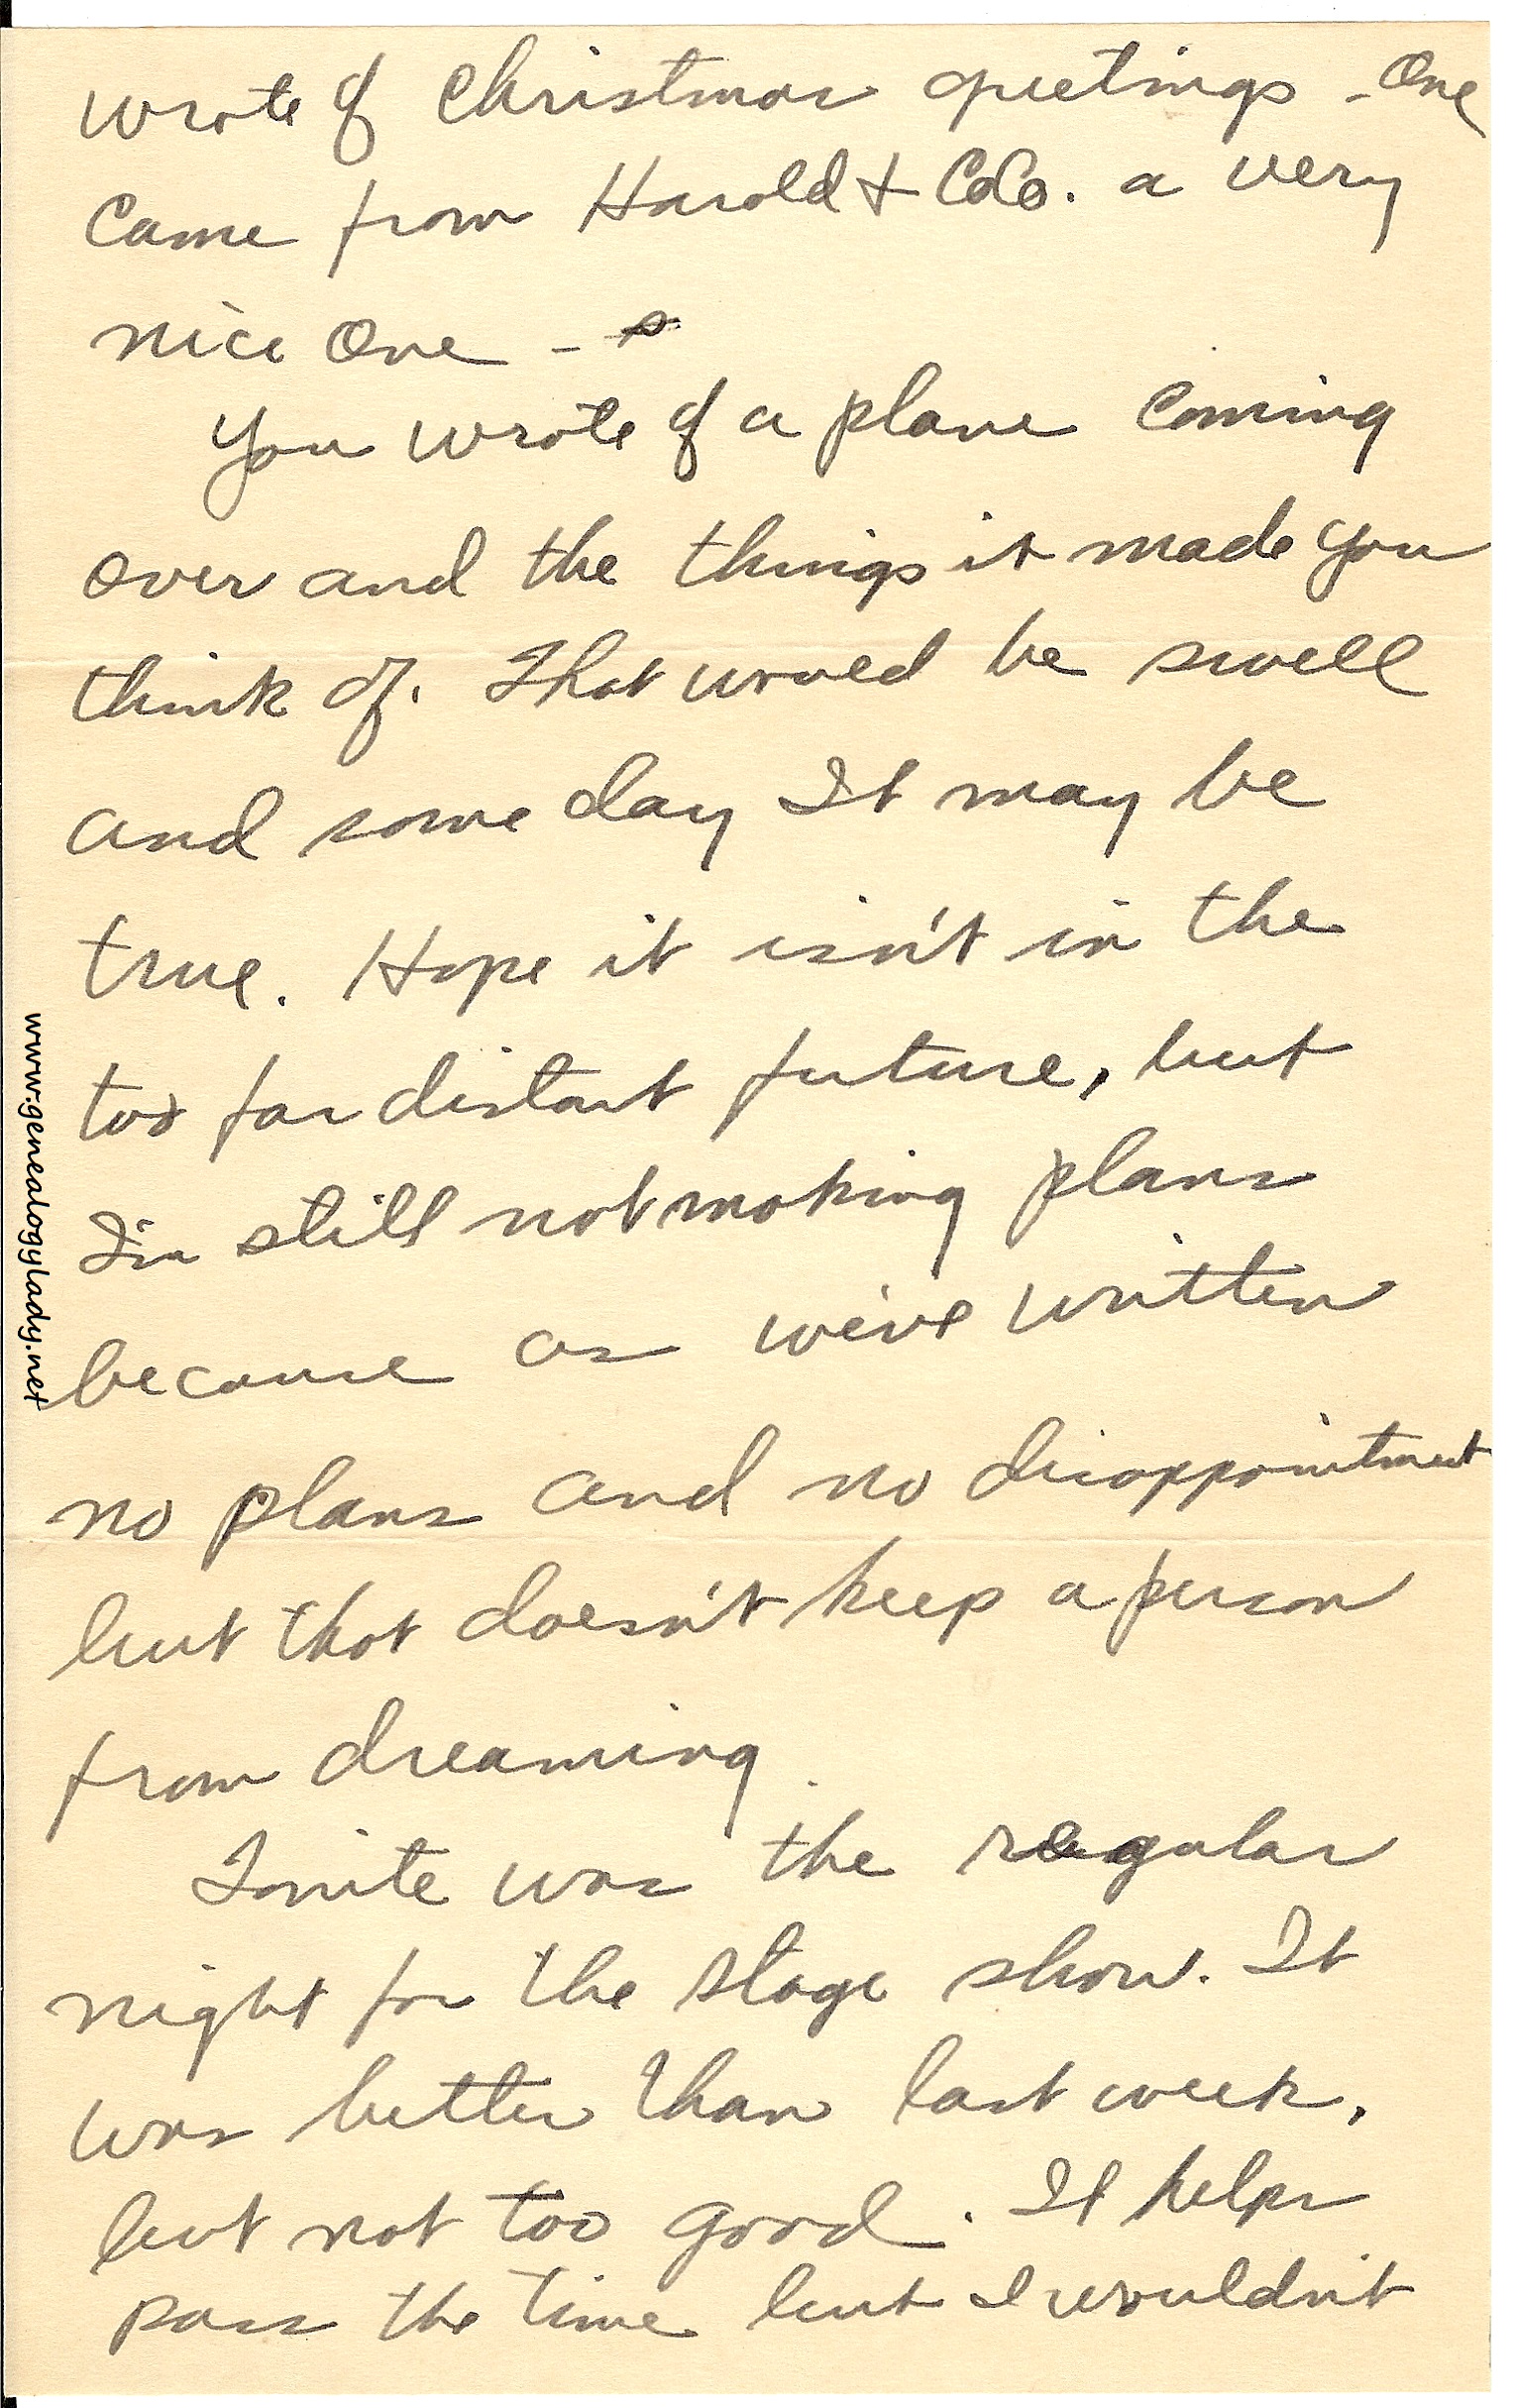 wrote of Christmas greetings - One
came from Harold & CoCo. a very
nice one -
You wrote of a plane coming
over and the things it made you
think of. That would be swell
and some day It may be
true. Hope it isn't in the
too far distant future, but
I'm still not making plans
because as we've written
no plans and no disappointment
but that doesn't keep a person
from dreaming.
Tonite was the regular
night for the stage show. It
was better than last week,
but not too good. It helps
pass the time but I wouldn't
www.genealogylady.net